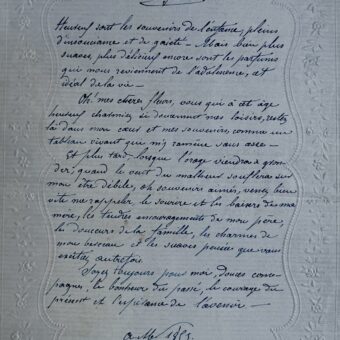 Heureux sont les souvenirs de l'enfance, pleins
d'insouciance et de gaieté — Mais bien plus
suaves, plus délicieux encore sont les parfums
qui nous reviennent de l'adolescence, cet
idéal de la vie —
Oh! mes chères fleurs, vous qui à cet âge
heureux charmiez si doucement mes loisirs, restez
là dans mon cœur et mes souvenirs, comme un
tableau vivant que m'y ramène sans cesse —
Et plus tard, lorsque l'orage viendra à gron-
der; quand le vent du malheur soufflera sur
mon être débile, oh souvenirs aimés, venez bien
vite me rappeler le sourire et les baisers de ma
mère, les tendres encouragements de mon père,
les douceurs de la famille, les charmes de
mon berceau et les suaves pensées que vous
excitiez autrefois.
Soyez toujours pour moi, douces com-
pagnes, le bonheur du passé, le courage du
présent et l'espérance de l'avenir —